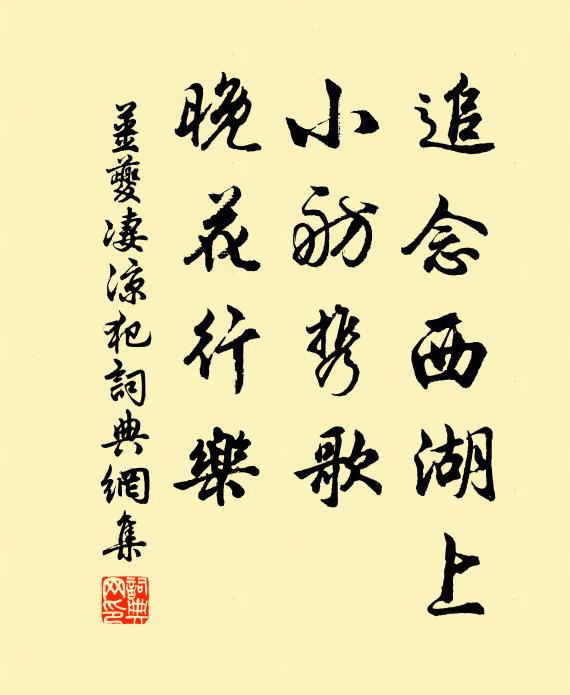 追念西湖上
小舫携歌
晚花行樂
姜夔凄涼犯詞典網集
詞典网印